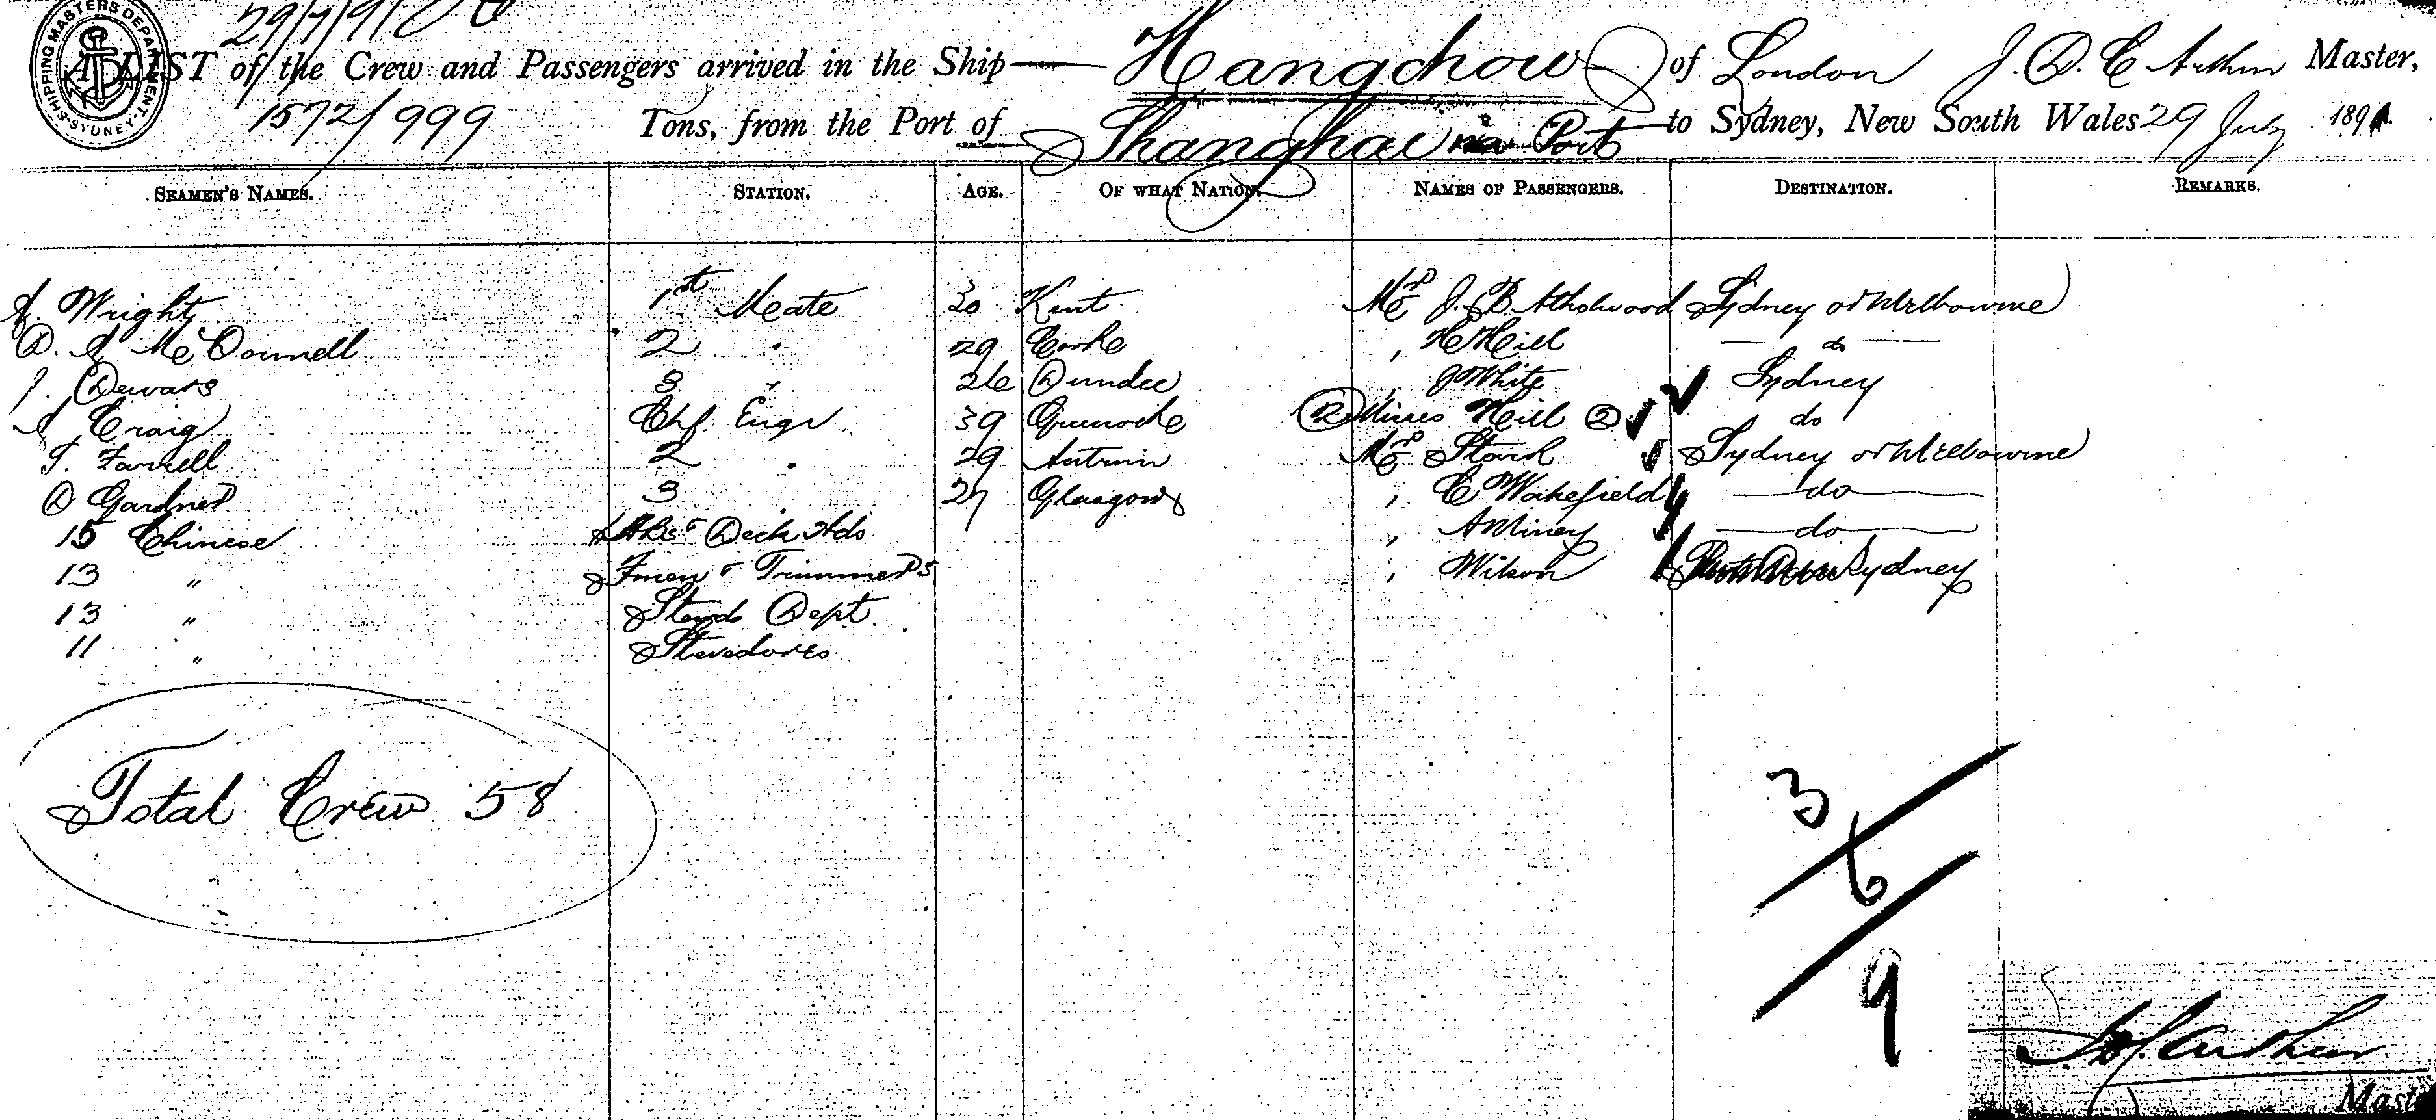 SHIPPING MASTERS DEPARTMENT SYDNEY
29/7/91
A LIST of the Crew and Passengers arrived in the Ship Hangchow of London J. D. C Arthur Master,
1572/999 Tons, from the Port of Shanghae via Port to Sydney, New South Wales 29 July 1891
SEAMEN'S NAMES. STATION. AGE. OF WHAT NATION. NAMES OF PASSENGERS. DESTINATION. REMARKS.
Wright 1st Mate 30 Kent Mr J. B. Atholwood Sydney or Melbourne
D. McDonnell 2 " 29 Corke " Hill do
J. Dewars 3 " 26 Dundee " J White Sydney
Craig Chf. Engr 39 Greenocke Misses Hill 2 do
T. Farrell 2 " 29 Antrim Mr Stark Sydney or Melbourne
D Gardner 3 27 Glasgow " E Wakefield do
15 Chinese & Deck Hds " do
13 " Fmen & Trimmers " Wilson Sydney
13 " Stewd Dept.
11 " Stevedores
Total Crew 58
3
6
9
Arthur
Master